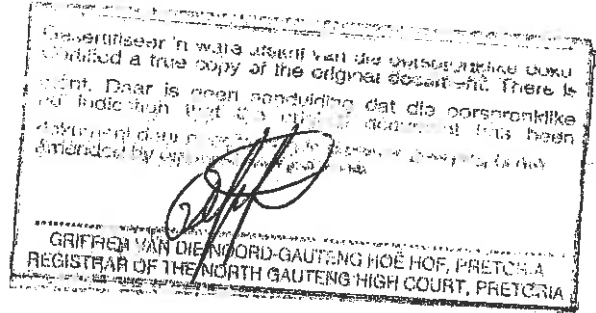 Gesertifiseer 'n ware van die oorspronklike doku
Certified a true copy of the original document. There is
ment. Daar is geen aanduiding dat die oorspronklike
no indication that the original document has been
dokument deur
amended by
GRIFFIER VAN DIE NOORD-GAUTENG HOË HOF, PRETORIA
REGISTRAR OF THE NORTH GAUTENG HIGH COURT, PRETORIA